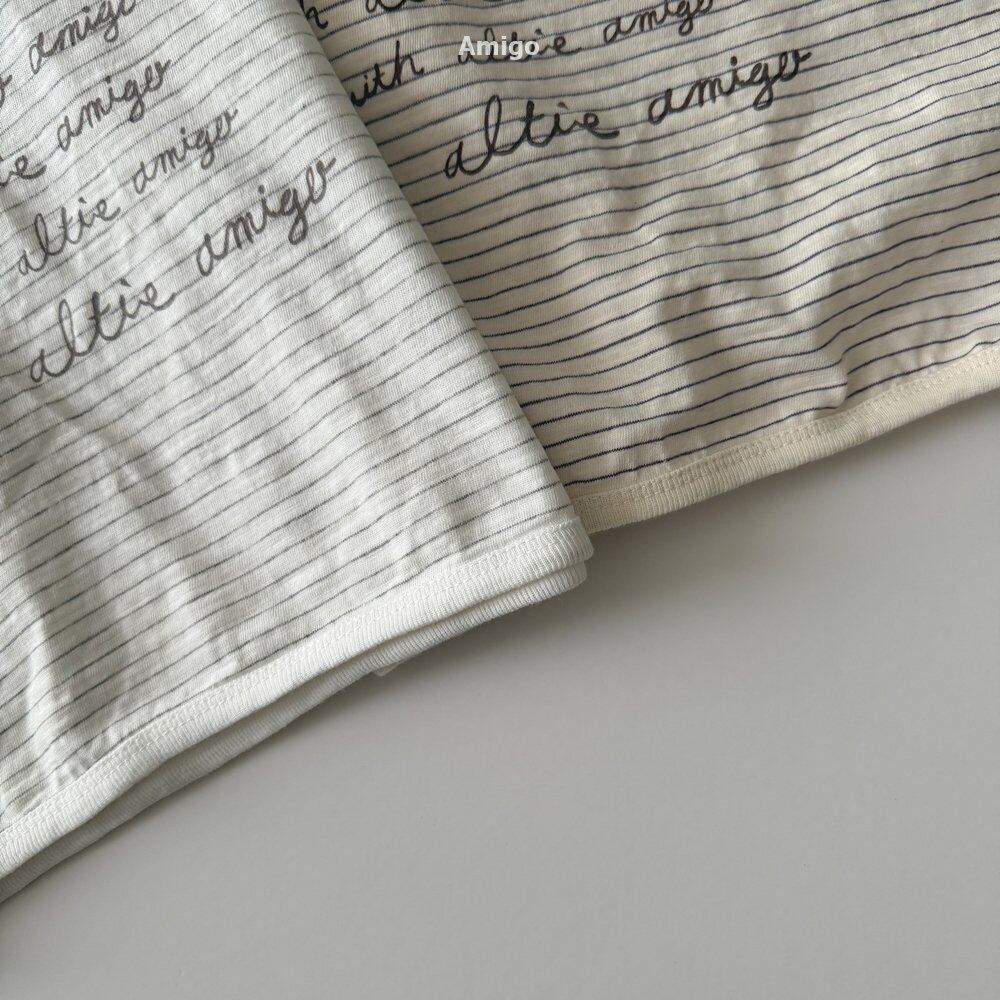 amigo
amigo
altie amigo
altie amigo
Amigo
with altie amigo
altie amigo